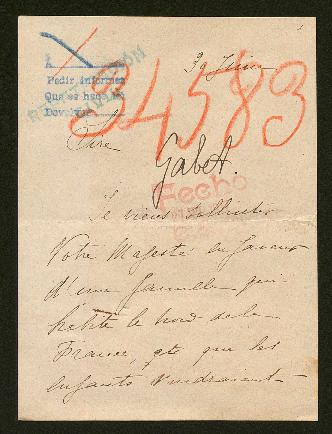 34583
Pedir informes
Que se haga
Devolver
30 Juin
Sire
Gabet.
Fecho
Je viens solliciter
Votre Majesté en faveur
d'une famille qui
habite le nord de la
France, et que les
enfants voudraient